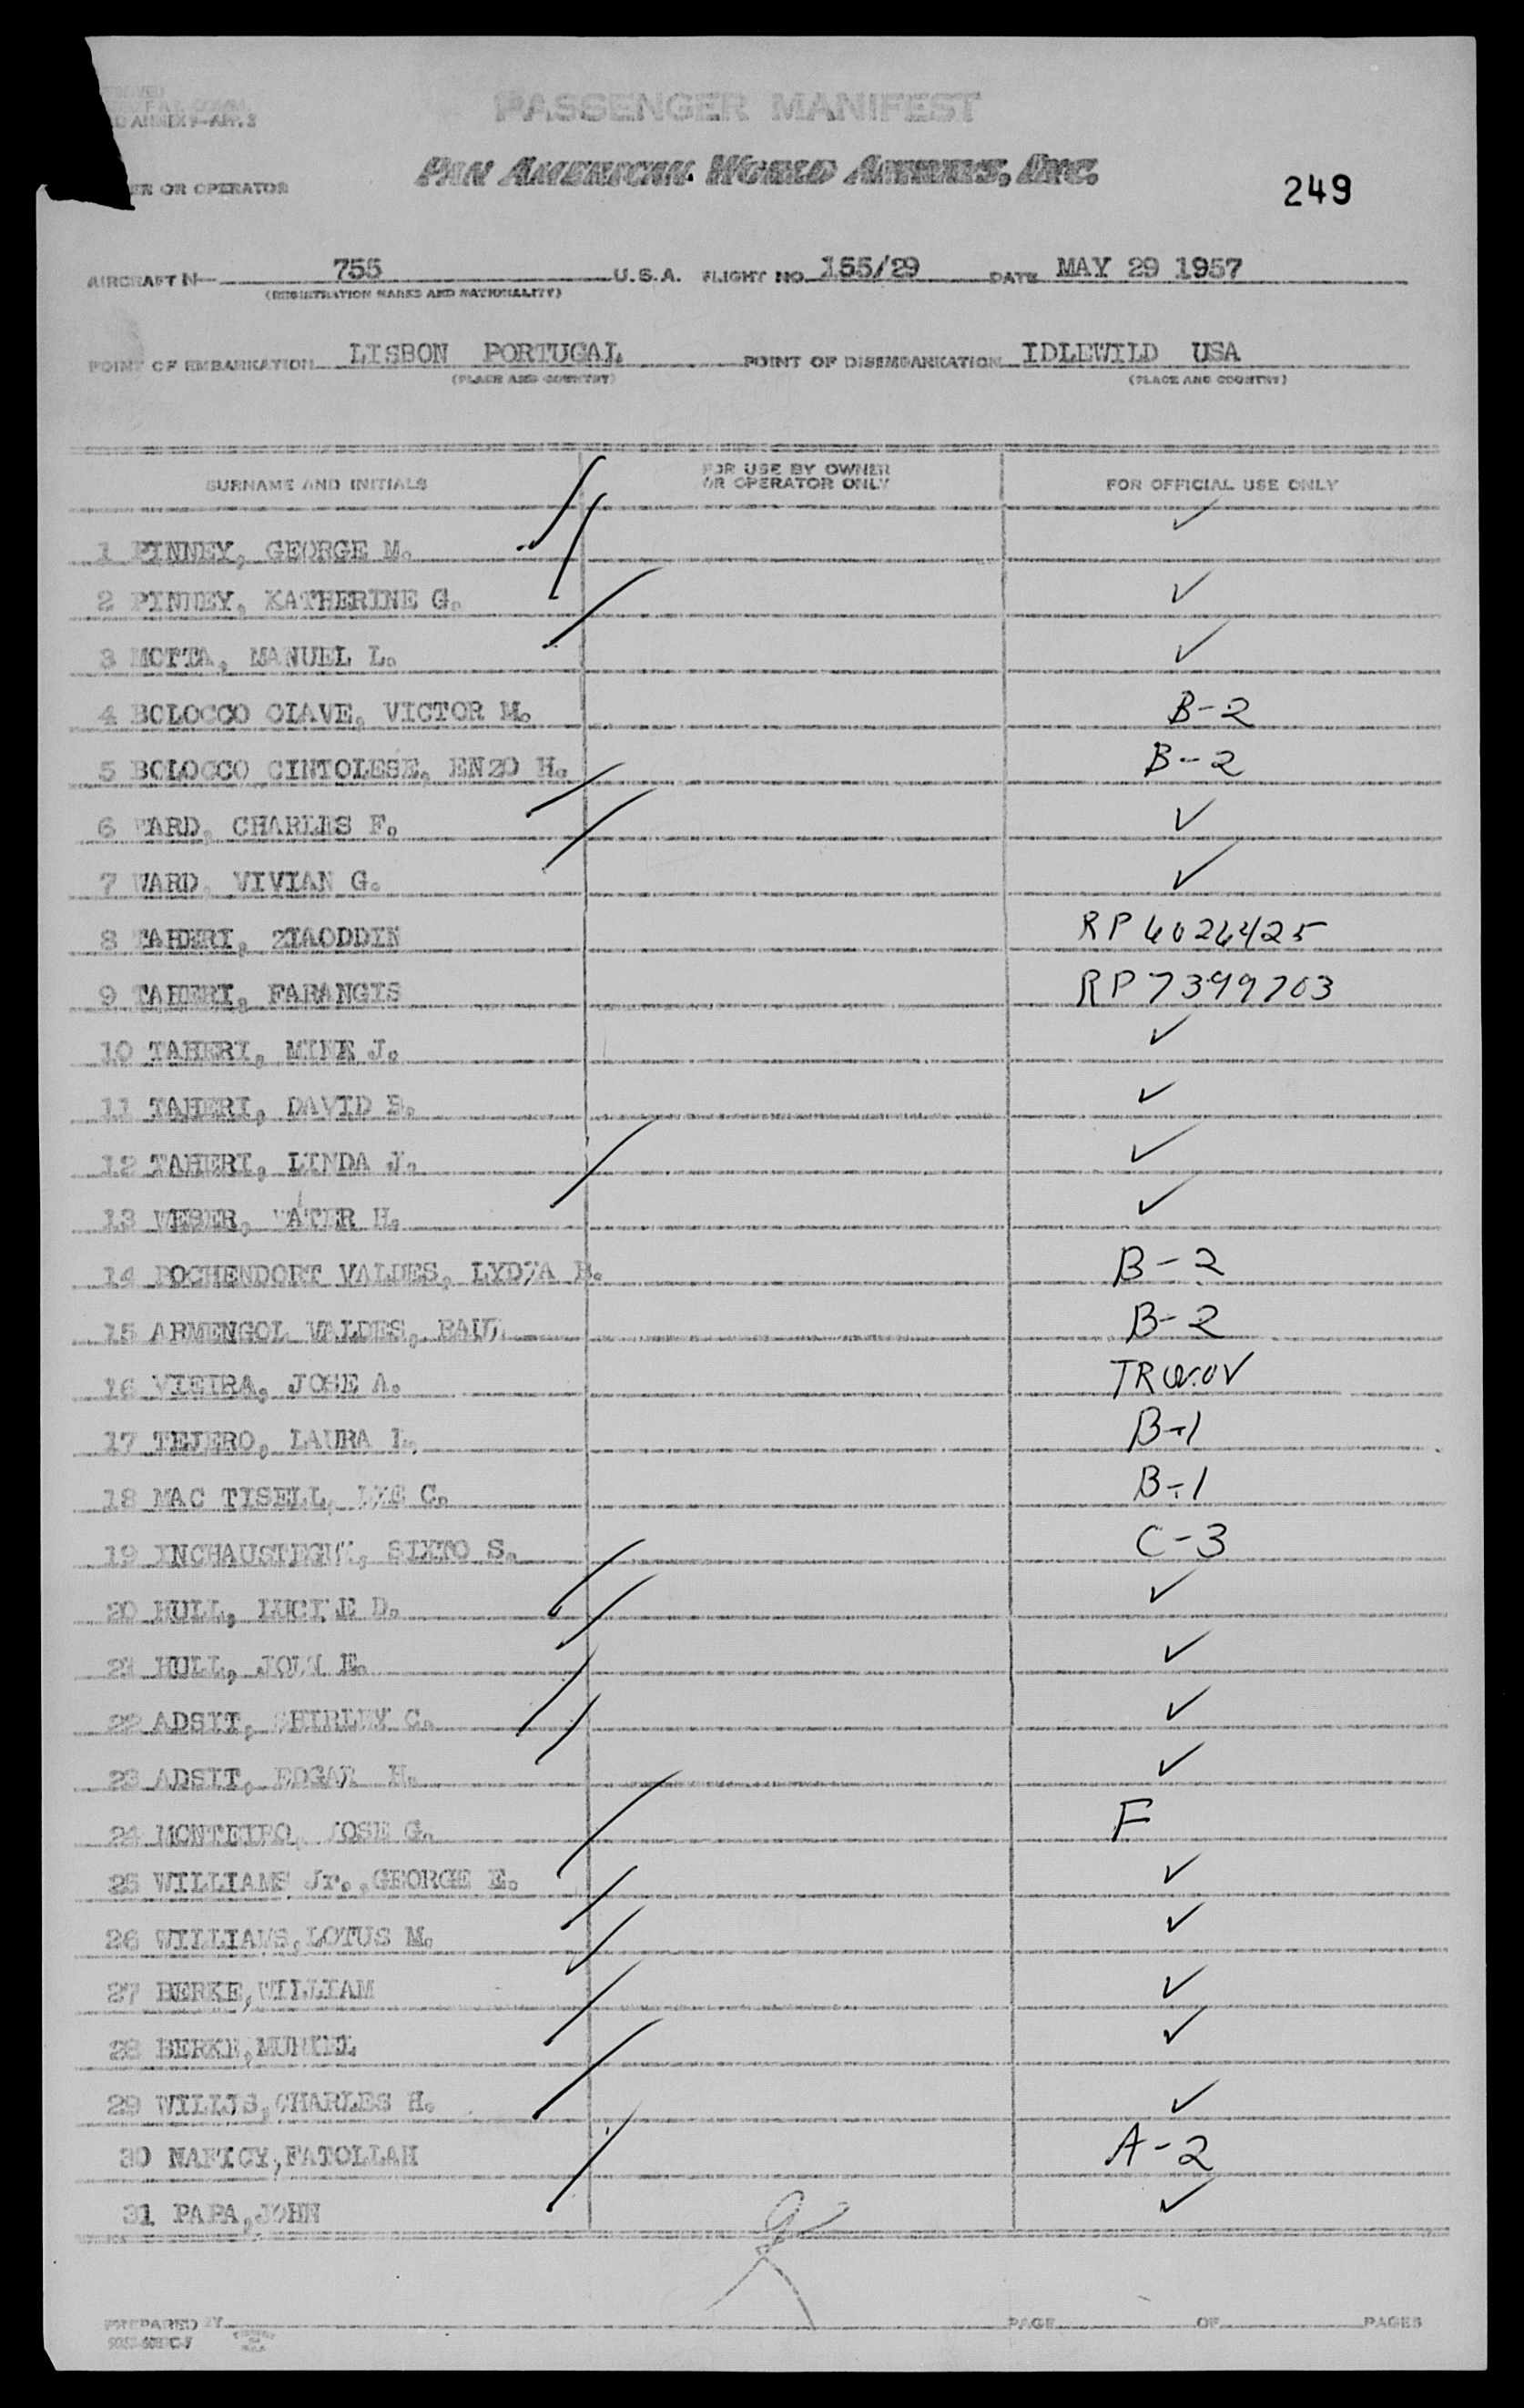 PASSENGER MANIFEST
D ANNEX 9-APP. 3
PAN AMERICAN WORLD AIRWAYS, INC.
ER OR OPERATOR
249
AIRCRAFT N 755 U.S.A. FLIGHT NO. 155/29 DATE MAY 29 1957
(REGISTRATION MARKS AND NATIONALITY)
POINT OF EMBARKATION LISBON PORTUGAL POINT OF DISEMBARKATION IDLEWILD USA
(PLACE AND COUNTRY) (PLACE AND COUNTRY)
SURNAME AND INITIALS FOR USE BY OWNER OR OPERATOR ONLY FOR OFFICIAL USE ONLY
1 PINNEY, GEORGE M. ✓
2 PINNEY, KATHERINE G. ✓
3 MOTTA, MANUEL L. ✓
4 BOLOCCO OLAVE, VICTOR M. B-2
5 BOLOCCO CINTOLESE, EN20 H. B-2
6 WARD, CHARLES F. ✓
7 WARD, VIVIAN G. ✓
8 TAHERI, 2IAODDIN RP 6026425
9 TAHERI, FARANGIS RP 7399703
10 TAHERI, MINE J. ✓
11 TAHERI, DAVID B. ✓
12 TAHERI, LINDA J. ✓
13 WEBER, WATER H. ✓
14 VALDES, LYDIA B-2
15 ARMENGOL VALDES, RAUL B-2
16 VIEIRA, JOSE A. TR
17 TEJERO, LAURA L. B-1
18 MAC TISELL, C. B-1
19 INCHAUSTEGUI, SIXTO S. C-3
20 HULL, LUCILE D. ✓
21 HULL, JOHN E. ✓
22 ADSIT, SHIRLEY C. ✓
23 ADSIT, EDGAR H. ✓
24 MONTEIRO, JOSE G. F
25 WILLIAMS Jr., GEORGE E. ✓
26 WILLIAMS, LOTUS M. ✓
27 BERKE, WILLIAM ✓
28 BERKE, MURIEL ✓
29 WILLIS, CHARLES H. ✓
30 NAFICY, FATOLLAH A-2
31 PAPA, JOHN ✓
PREPARED BY PAGE OF PAGES